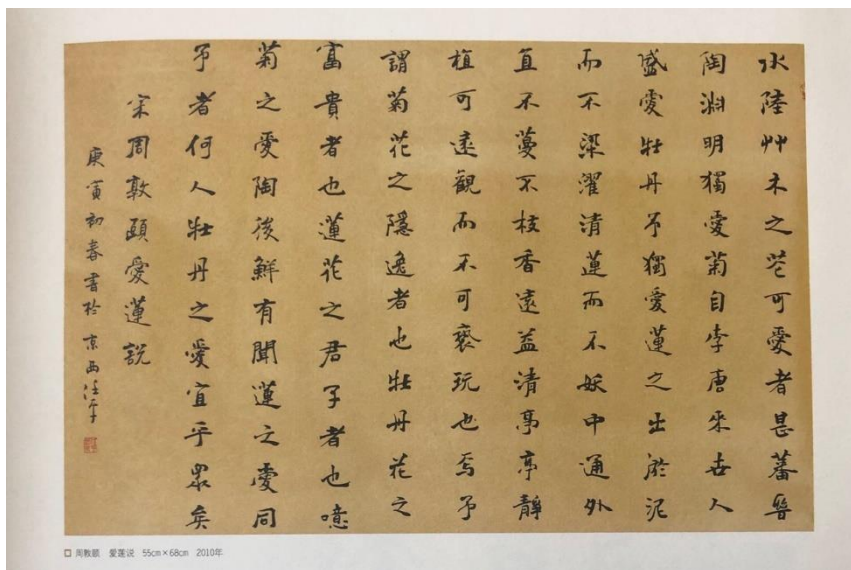 水陸艸木之花可愛者甚蕃晉
陶渊明獨愛菊自李唐來世人
盛愛牡丹予獨愛蓮之出淤泥
而不染濯清蓮而不妖中通外
直不蔓不枝香遠益清亭亭靜
植可遠觀而不可褻玩也焉予
謂菊花之隱逸者也牡丹花之
富貴者也蓮花之君子者也噫
菊之愛陶後鮮有聞蓮之愛同
予者何人牡丹之愛宜乎眾矣
宋周敦頤愛蓮說
庚寅初春書於京西
周敦颐 爱莲说 55cm×68cm 2010年